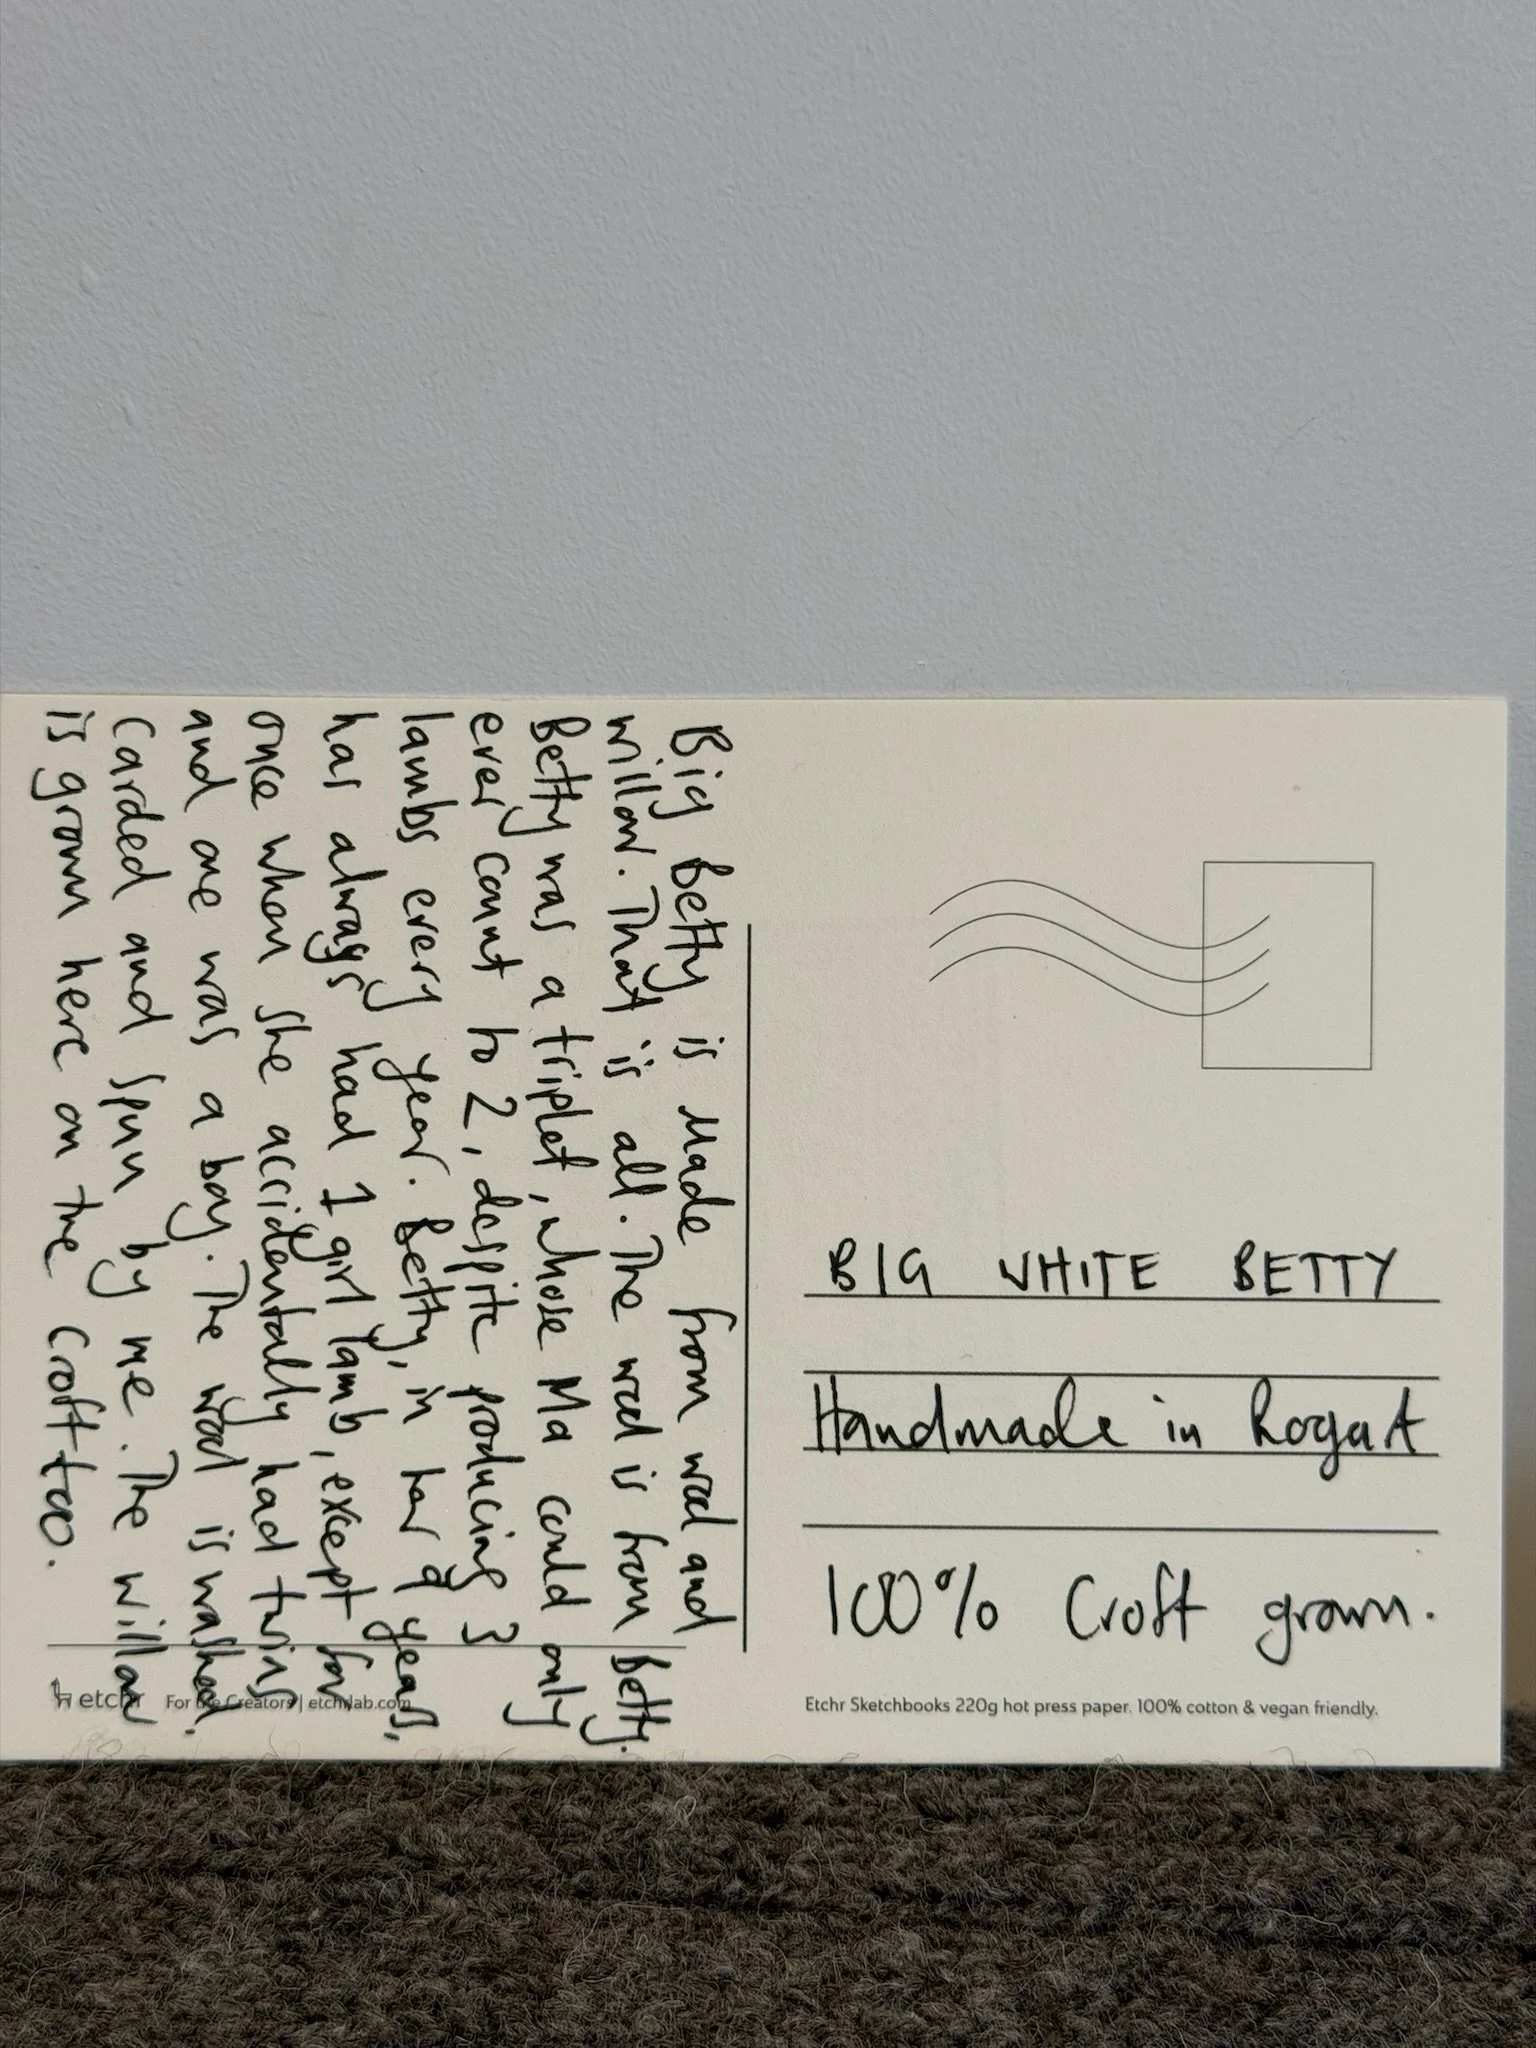 Big Betty is Made from wool and
willow. That is all. The wool is from Betty.
Betty was a triplet, whose Ma could only
ever count to 2, despite producing 3
lambs every year. Betty, in her 9 years,
has always had 1 girl lamb, except for
once when she accidentally had twins
and one was a boy. The wool is washed.
Carded and spun by me. The willow
is grown here on the croft too.
BIG WHITE BETTY
Handmade in Rogart
100% Croft grown.
etchr For the Creators | etchrlab.com
Etchr Sketchbooks 220g hot press paper. 100% cotton & vegan friendly.